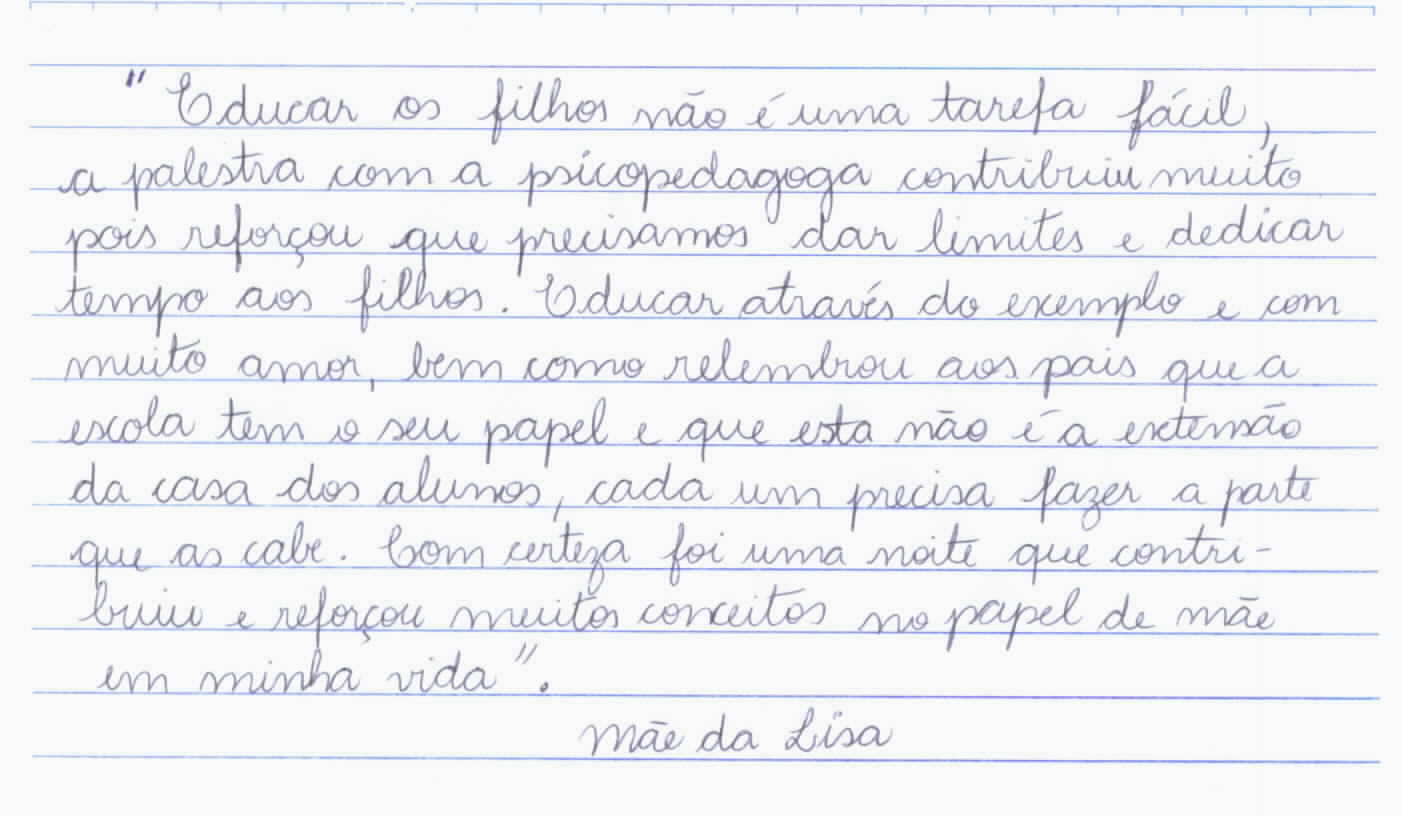 "Educar os filhos não é uma tarefa fácil,
a palestra com a psicopedagoga contribuiu muito
pois reforçou que precisamos dar limites e dedicar
tempo aos filhos. Educar através do exemplo e com
muito amor, bem como relembrou aos pais que a
escola tem o seu papel e que esta não é a extensão
da casa dos alunos, cada um precisa fazer a parte
que as cabe. Com certeza foi uma noite que contri-
buiu e reforçou muitos conceitos no papel de mãe
em minha vida".
Mãe da Lisa